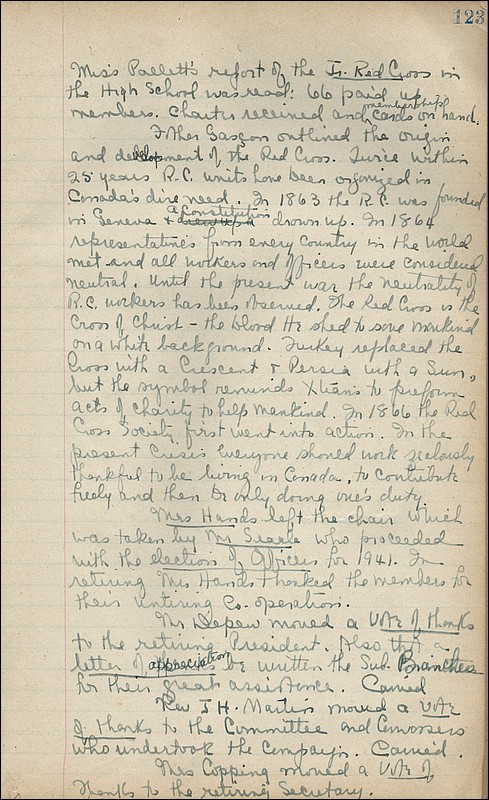 123
Miss Pallett's report of the Jr. Red Cross in
the High School was read: 66 paid up
members. Charter received and membership cards on hand.
Father Gascon outlined the origin
and development of the Red Cross. Twice within
25 years R.C. units have been organized in
Canada's dire need. In 1863 the R.C. was founded
in Geneva & a Constitution drawn up. In 1864
representatives from every country in the world
met and all workers and officers were considered
neutral. Until the present war the neutrality of
R.C. workers has been observed. The Red Cross is the
Cross of Christ - the blood He shed to save mankind
on a white background. Turkey replaced the
Cross with a Crescent & Persia with a Sun,
but the symbol reminds Xtians to preform
acts of charity to help mankind. In 1866 the Red
Cross Society first went into action. In the
present crisis everyone should work zealously
thankful to be living in Canada, to contribute
freely and then be only doing one's duty.
Mrs Hands left the chair which
was taken by Mr Searle who proceeded
with the election of Officers for 1941. In
retiring Mrs Hands thanked the members for
their untiring Co. operation.
Mr Depew moved a vote of thanks
to the retiring President. Also that a
letter of appreciation be written the Sub. Branches
for their great assistance. Carried
Rev J H. Martin moved a vote
of thanks to the Committee and Canvassers
who undertook the Campaign. Carried.
Mrs Copping moved a vote of
thanks to the retiring Secretary.